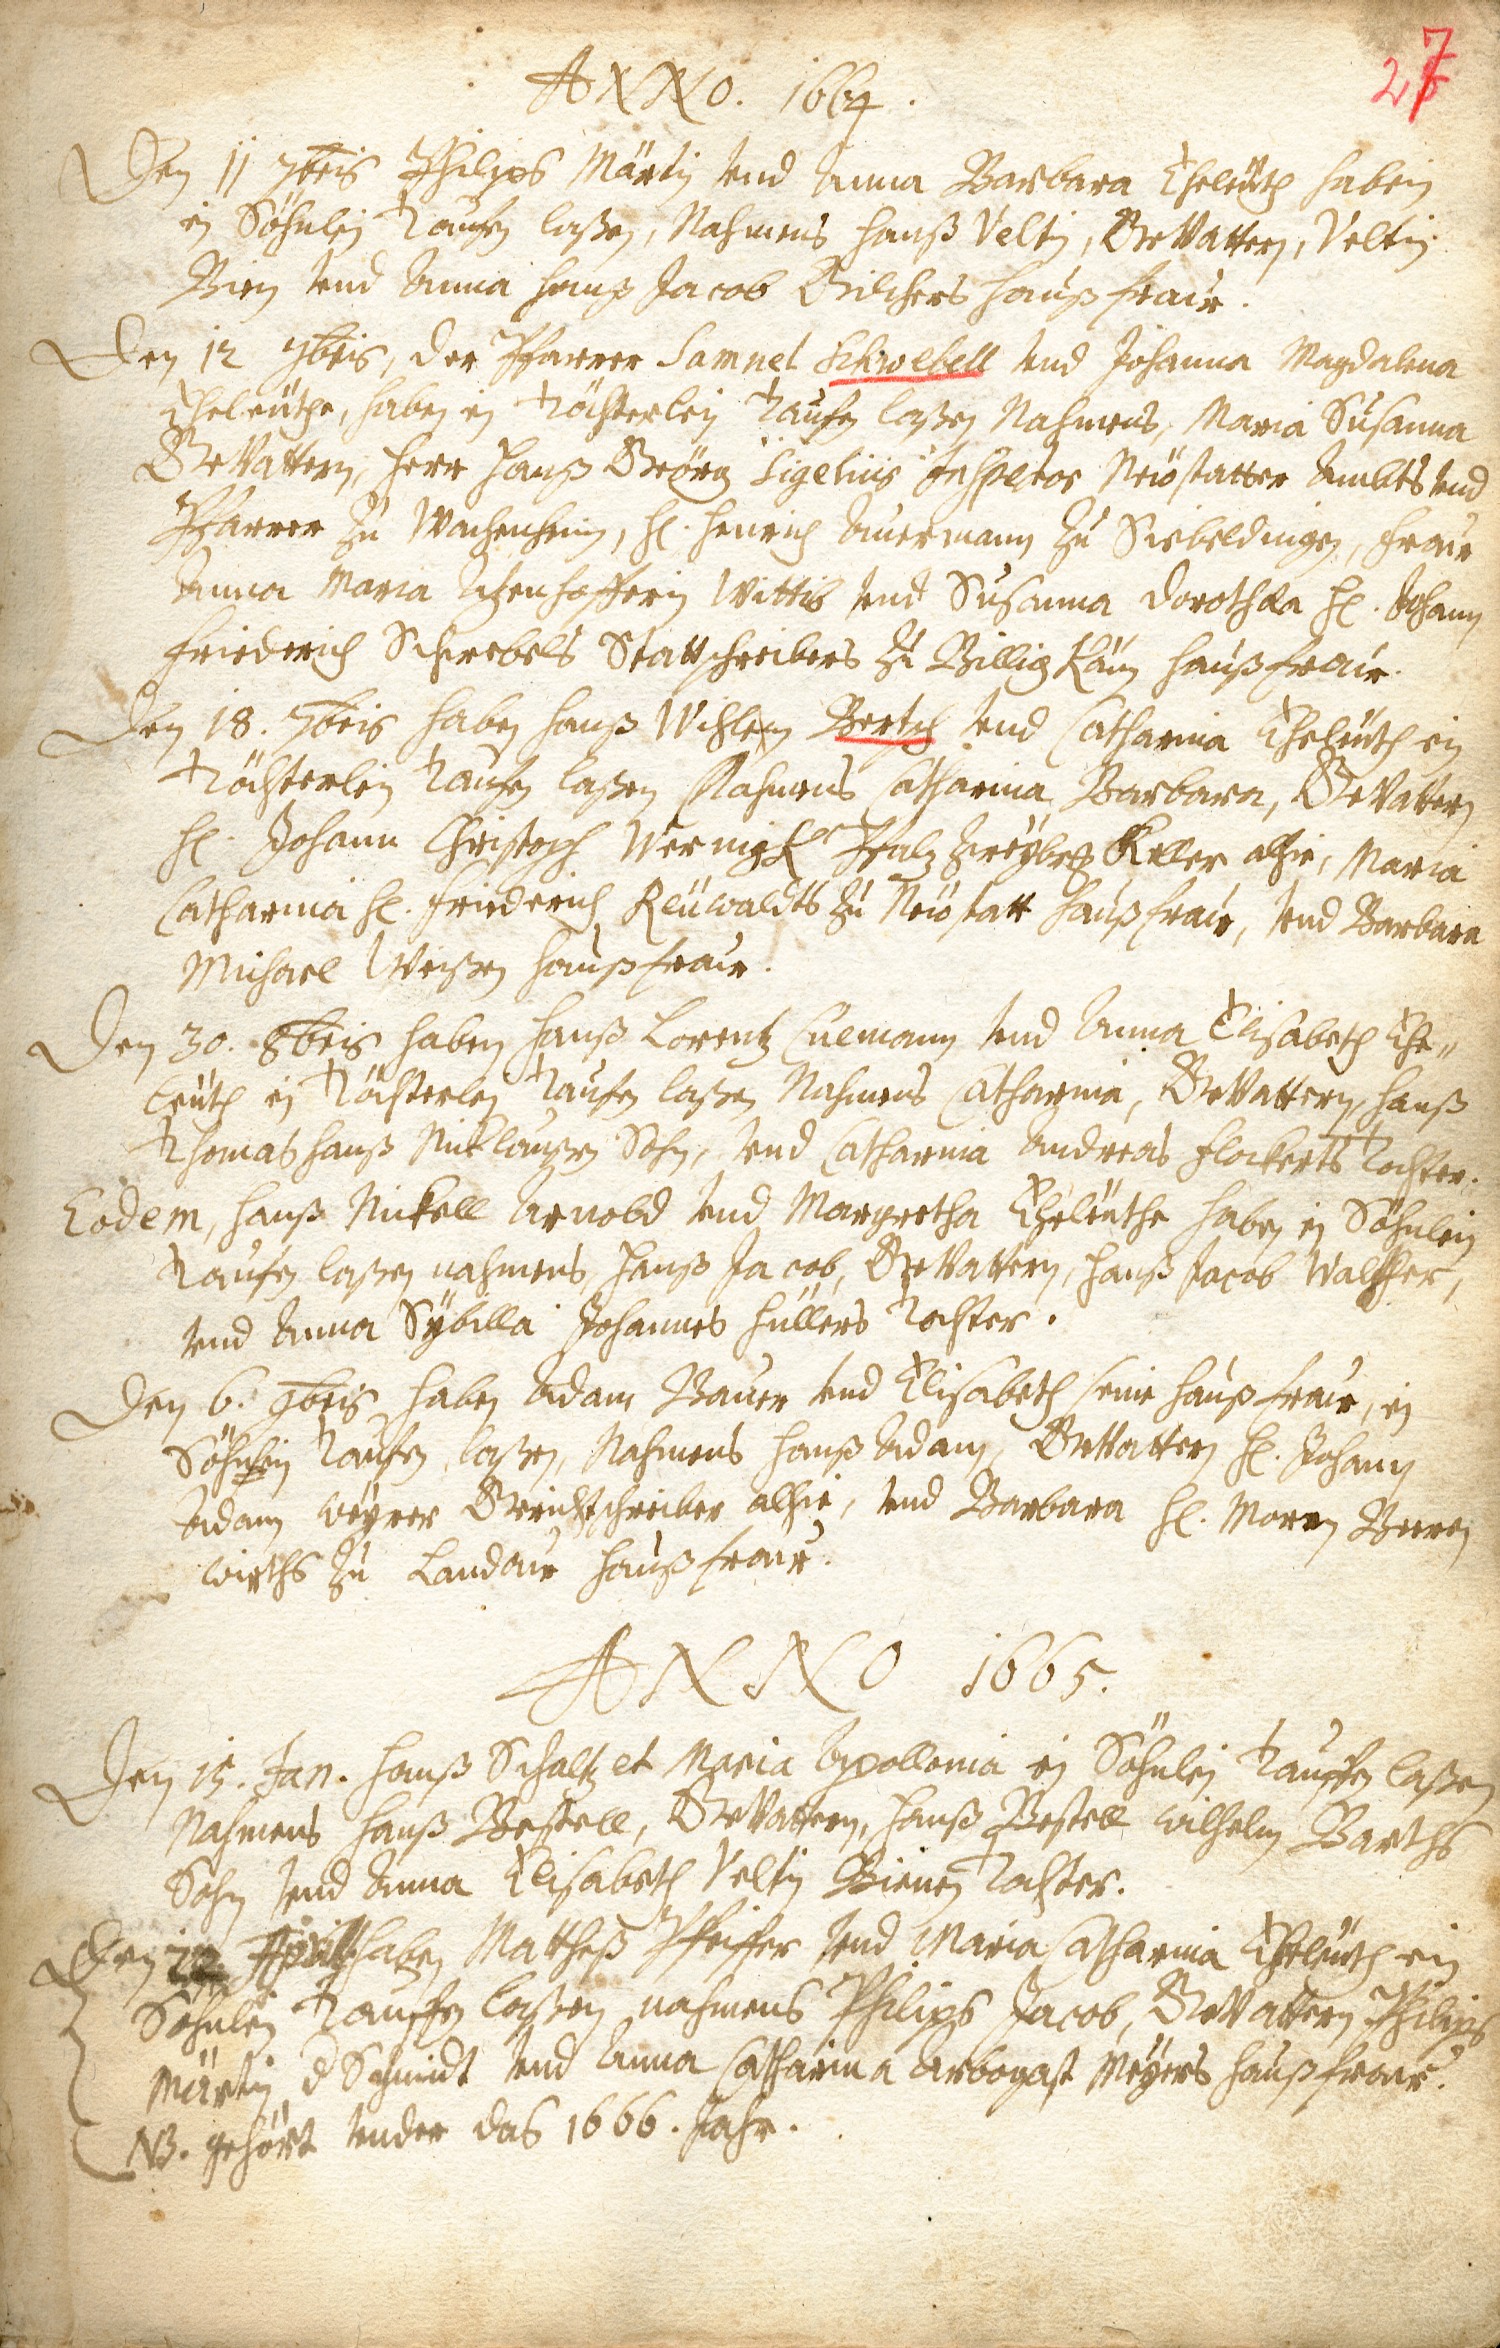 27
ANNO. 1664.
Den 11 7bris Philips Märtin vnd Anna Barbara Eheleüth haben
ein Söhnlein Taufen laßen, Nahmens Hanß Veltin, GeVattern, Veltin
Bien vnd Anna Hanß Jacob Bilchers Haußfraw.
Den 12 7bris, der Pfarrer Samuel Schwebell vnd Johanna Magdalena
Eheleüthe, haben ein Töchterlein Taufen laßen Nahmens, Maria Susanna
GeVattern, Herr Hanß Geörg Sigelius Inspector Neüstatter Ambts vnd
Pfarrer zu Wachenheim, H. Henrich Auermann zu Siebeldingen, Fraw
Anna Maria Wittib vnd Susanna Dorothea H. Johann
Friederich Schwebels Stattschreibers zu Billigkäm Haußfraw.
Den 18. 7bris haben Hanß Wihlem Bertsch vnd Catharina Eheleüth ein
Töchterlein Taufen laßen Nahmens Catharina Barbara, GeVattern
H. Johann Christoph Wernigk Pfalz Keller alhie, Maria
Catharina H. Friederich Reüwaldts zu Neüstatt Haußfraw, vnd Barbara
Michael Weißen Haußfraw.
Den 30. 8bris haben Hanß Lorentz Culmann vnd Anna Elisabeth Ehe„
leüth ein Töchterlein Taufen laßen Nahmens Catharina, GeVattern, Hanß
Thomas Hanß Nicklaußen Sohn, vnd Catharina Andreas Flockerts Tochter.
Eodem, Hanß Nickell Arnold vnd Margretha Eheleüthe haben ein Söhnlein
Taufen laßen nahmens, Hanß Jacob, GeVattern, Hanß Jacob Walther,
vnd Anna Sÿbilla Johannes Hüllers Tochter.
Den 6. 9bris haben Adam Bauer vnd Elisabeth seine Haußfraw, ein
Söhnlein Taufen laßen, Nahmens Hanß Adam, GeVattern H. Johann
Adam Weÿrer Gerichtschreiber alhie, vnd Barbara H. Beeren
wirths zu Landaw Haußfraw.
ANNO 1665.
Den 15. Jan. Hanß Schaltz et Maria Apollonia ein Söhnlein Tauffen laßen
Nahmens Hanß Bestell, GeVattern, Hanß Bestell Wilhelm Barths
Sohn vnd Anna Elisabeth Veltin Bienen Tochter.
Den Aprill haben Mattheß Pfeiffer vnd Maria Catharina Eheleüth ein
Söhnlein Tauffen laßen nahmens Philips Jacob, GeVattern Philips
Märtin d Schmidt vnd Anna Catharina Arbogast Meÿers Haußfraw.
NB. gehört vnder das 1666. Jahr.